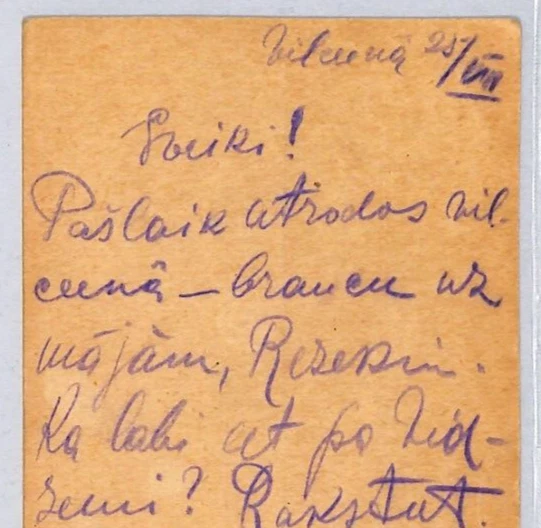 Vilcienā 25/VIII
Sveiki!
Pašlaik atrodos vil-
cienā – braucu uz
mājām, Rēzekni.
Kā labi iet pa Vid-
zemi? Rakstat